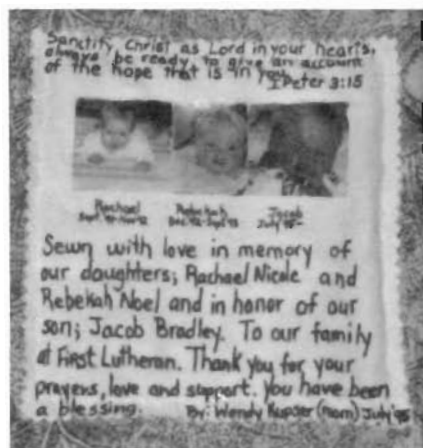 Sanctify Christ as Lord in your hearts,
always be ready to give an account
of the hope that is in you.
I Peter 3:15
Rachael Rebekah Jacob
Sewn with love in memory of
our daughters; Rachael Nicole and
Rebekah Noel and in honor of our
son; Jacob Bradley. To our family
at First Lutheran. Thank you for your
prayers, love and support. You have been
a blessing. By: Wendy (mom) July '95